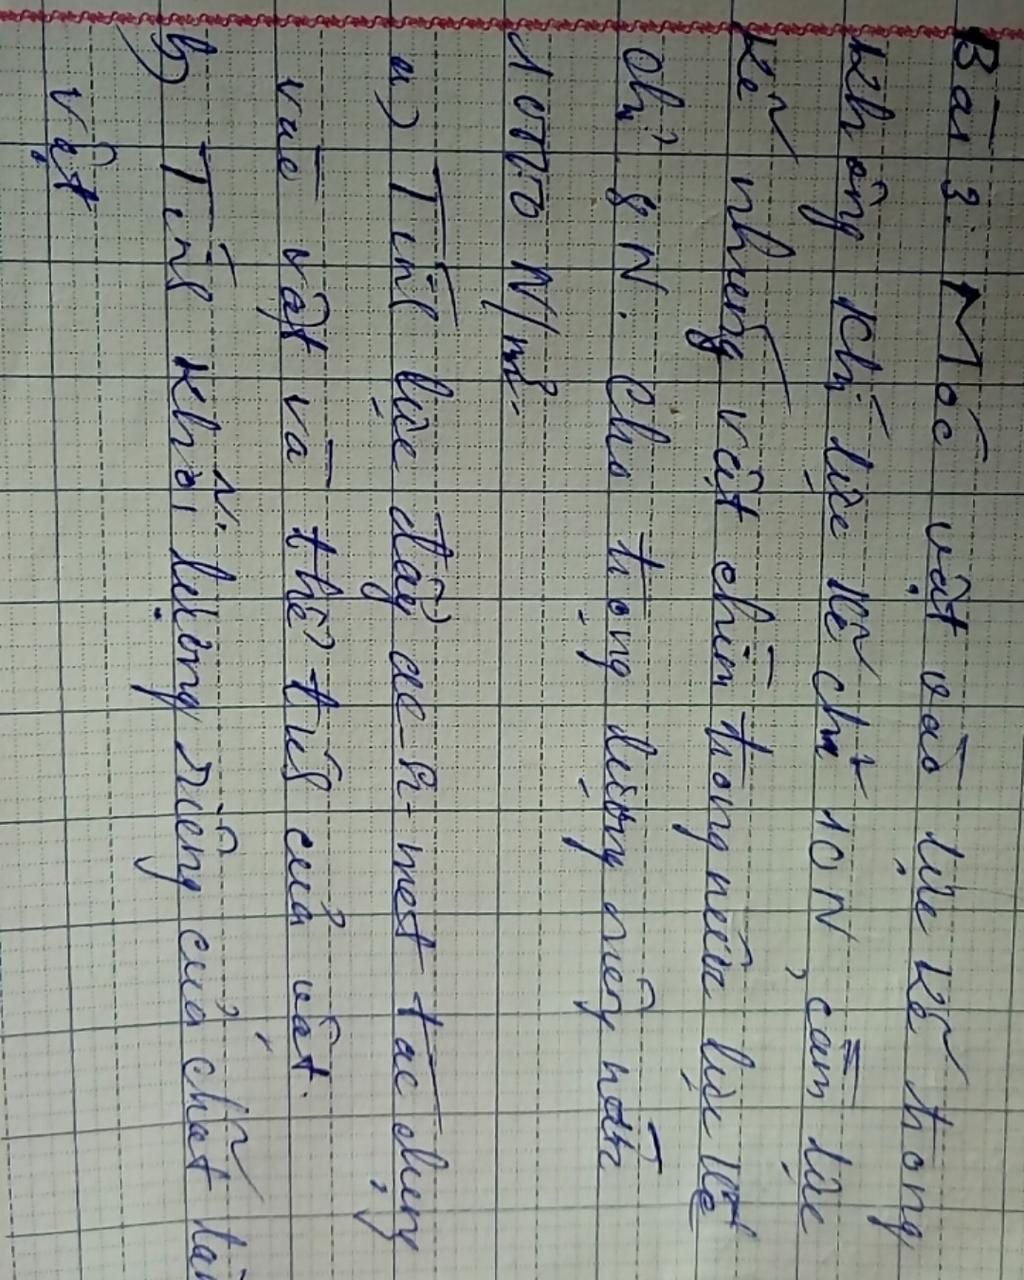 Bài 3: Móc vật vào lực kế trong
không khí lực kế chỉ 10N, cầm lực
kế nhúng vật chìm trong nước lực kế
chỉ 8N. Cho trọng lượng riêng nước
10000 N/m³.
a) Tính lực đẩy ác-si-mét tác dụng
vào vật và thể tích của vật.
b) Tính khối lượng riêng của chất làm
vật